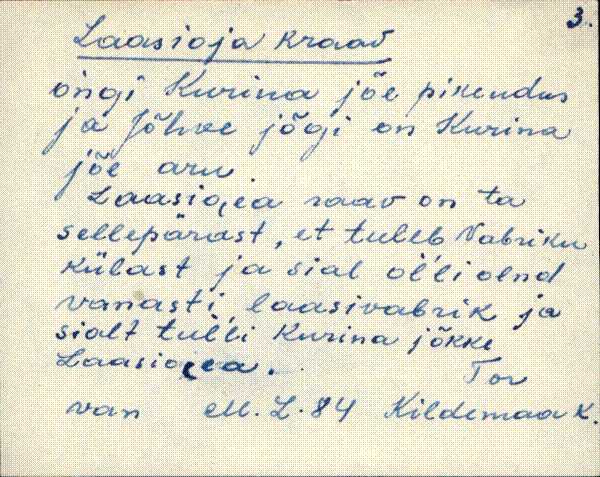 3.
Laasioja kraav
ongi Kurina jõe pikendus
ja Jõhve jõgi on Kurina
jõe aru.
Laasiojea raav on ta
sellepärast, et tuleb Vabriku
külast ja sial olli olnd
vanasti laasivabrik ja
sialt tulli Kurina jõkke
Laasiojea.
Tor
van M. L. 84 Kildemaa k.